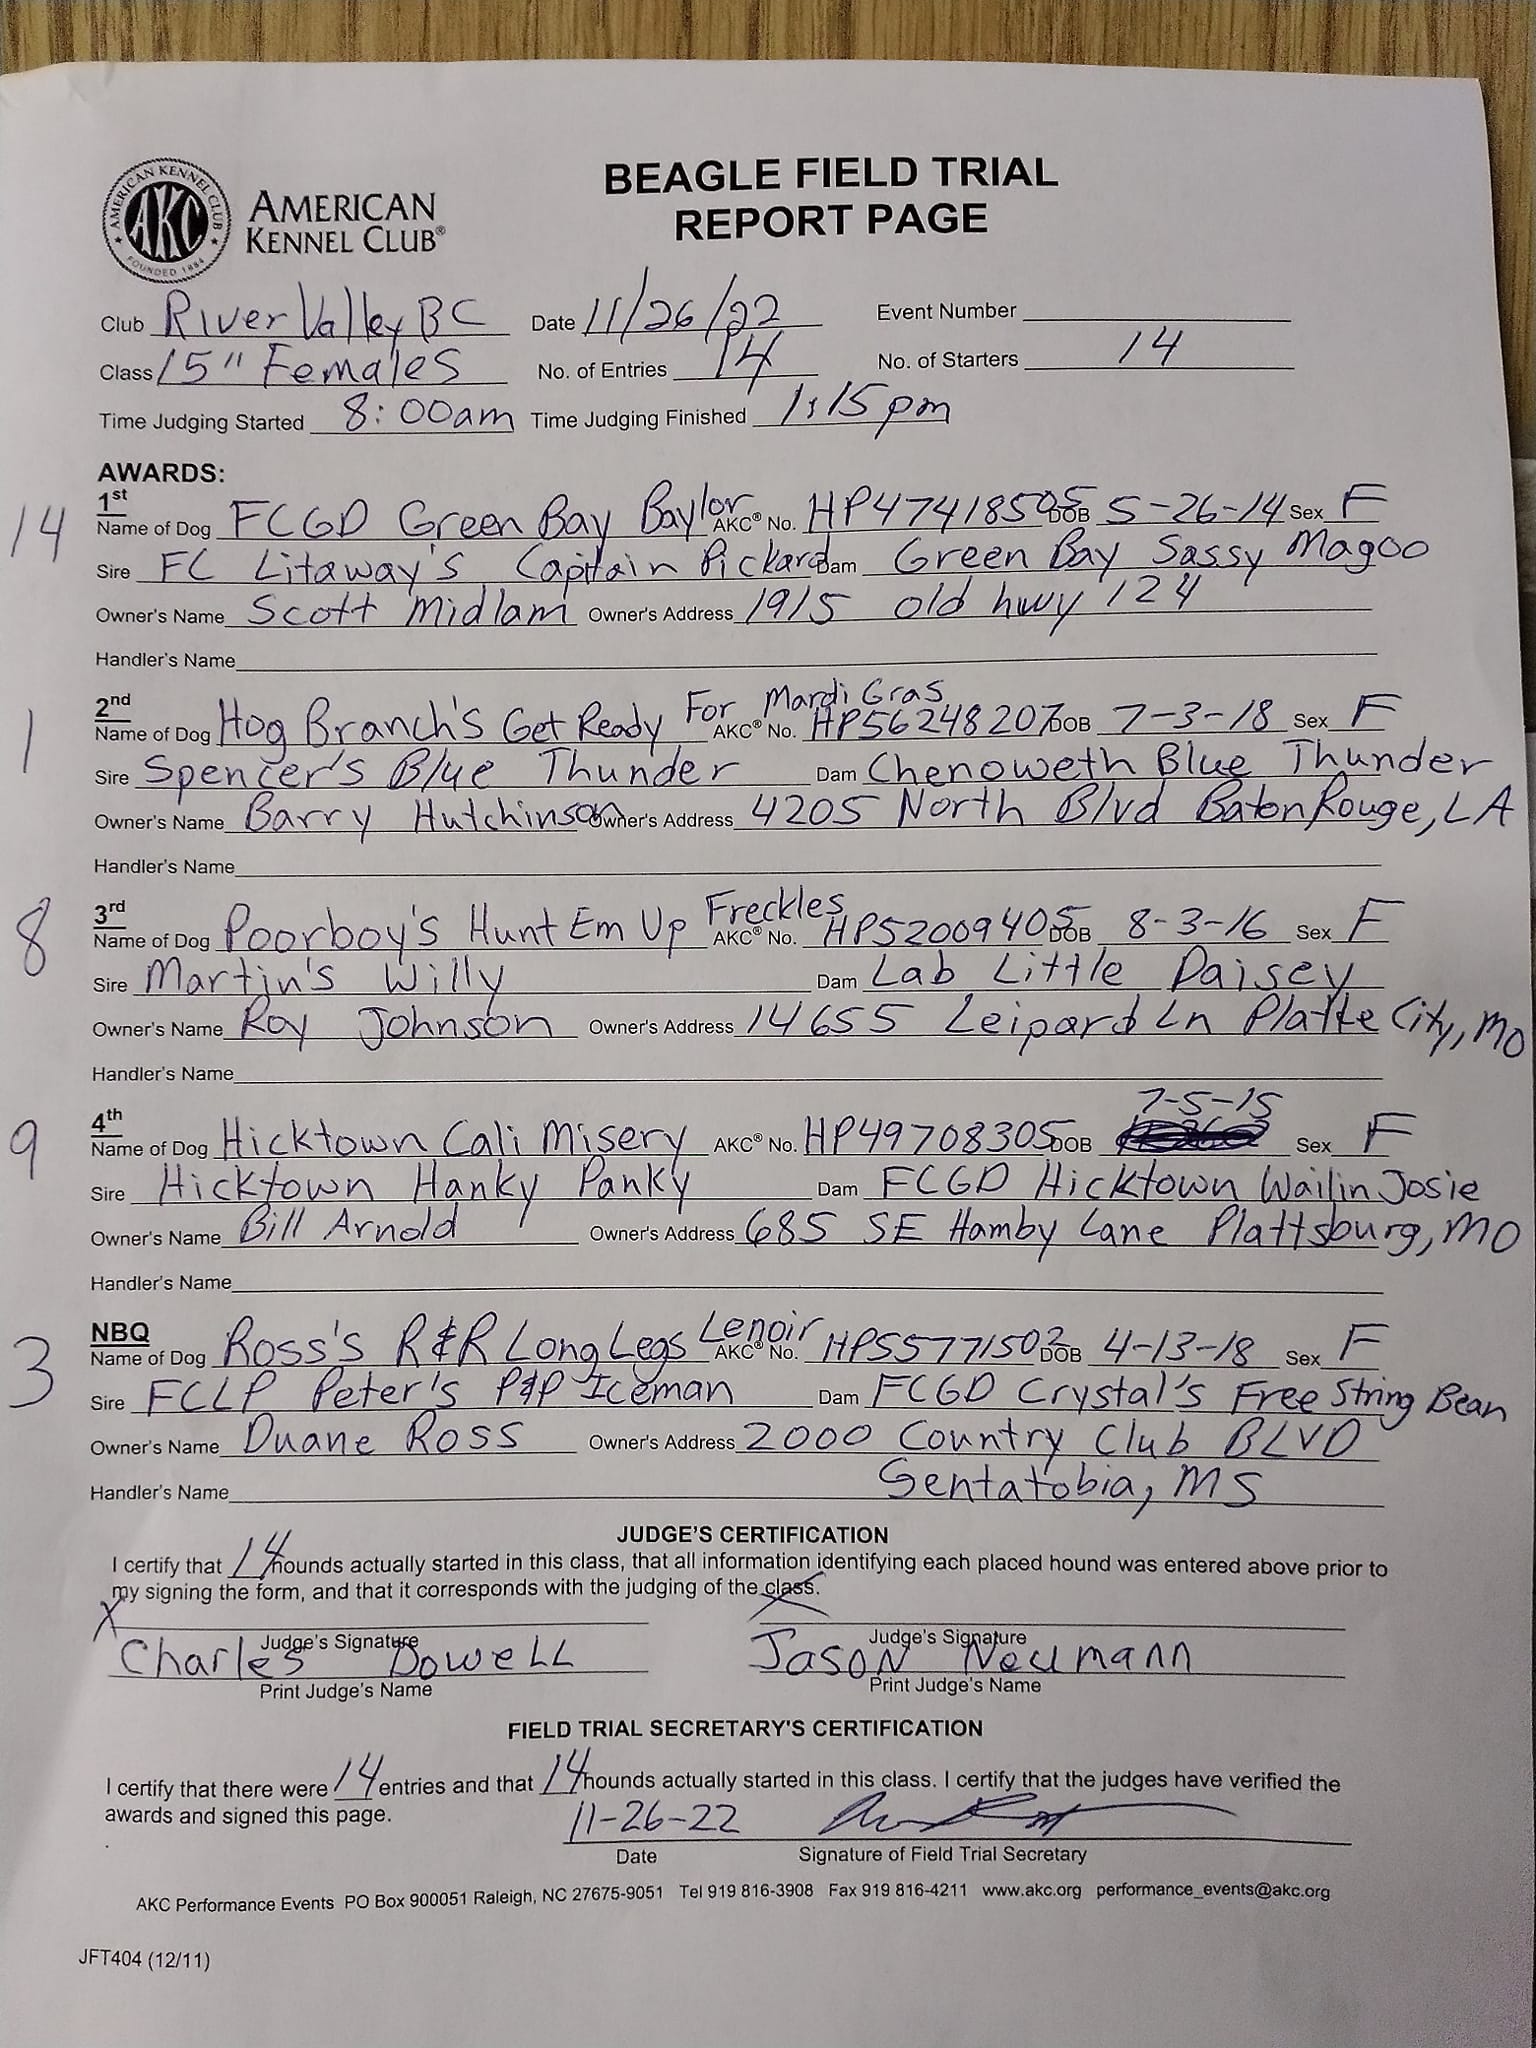 BEAGLE FIELD TRIAL
REPORT PAGE
AMERICAN KENNEL CLUB
AKC
FOUNDED 1884
AMERICAN
KENNEL CLUB®
Club River Valley BC Date 11/26/22 Event Number
Class 15" Females No. of Entries 14 No. of Starters 14
Time Judging Started 8:00am Time Judging Finished 1:15pm
AWARDS:
1st
14 Name of Dog FCGD Green Bay Baylor AKC® No. HP47418505 DOB 5-26-14 Sex F
Sire FC Litaway's Capitain Pickard Dam Green Bay Sassy Magoo
Owner's Name Scott Midlam Owner's Address 1915 old hwy 124
Handler's Name
2nd
1 Name of Dog Hog Branch's Get Ready For Mardi Gras AKC® No. HP56248207 DOB 7-3-18 Sex F
Sire Spencer's Blue Thunder Dam Chenoweth Blue Thunder
Owner's Name Barry Hutchinson Owner's Address 4205 North Blvd Baton Rouge, LA
Handler's Name
3rd
8 Name of Dog Poorboy's Hunt Em Up Freckles AKC® No. HP52009405 DOB 8-3-16 Sex F
Sire Martin's Willy Dam Lab Little Daisey
Owner's Name Roy Johnson Owner's Address 14655 Leipard Ln Platte City, MO
Handler's Name
4th
9 Name of Dog Hicktown Cali Misery AKC® No. HP49708305 DOB 7-5-15 Sex F
Sire Hicktown Hanky Panky Dam FCGD Hicktown Wailin Josie
Owner's Name Bill Arnold Owner's Address 685 SE Hamby Lane Plattsburg, MO
Handler's Name
NBQ
3 Name of Dog Ross's R&R Long Legs Lenoir AKC® No. HP55771502 DOB 4-13-18 Sex F
Sire FCLP Peter's P&P Iceman Dam FCGD Crystal's Free String Bean
Owner's Name Duane Ross Owner's Address 2000 Country Club BLVD
Handler's Name Sentatobia, MS
JUDGE'S CERTIFICATION
I certify that 14 hounds actually started in this class, that all information identifying each placed hound was entered above prior to
my signing the form, and that it corresponds with the judging of the class.
X X
Judge's Signature Judge's Signature
Charles Dowell Jason Neumann
Print Judge's Name Print Judge's Name
FIELD TRIAL SECRETARY'S CERTIFICATION
I certify that there were 14 entries and that 14 hounds actually started in this class. I certify that the judges have verified the
awards and signed this page.
11-26-22
Date Signature of Field Trial Secretary
AKC Performance Events PO Box 900051 Raleigh, NC 27675-9051 Tel 919 816-3908 Fax 919 816-4211 www.akc.org performance_events@akc.org
JFT404 (12/11)